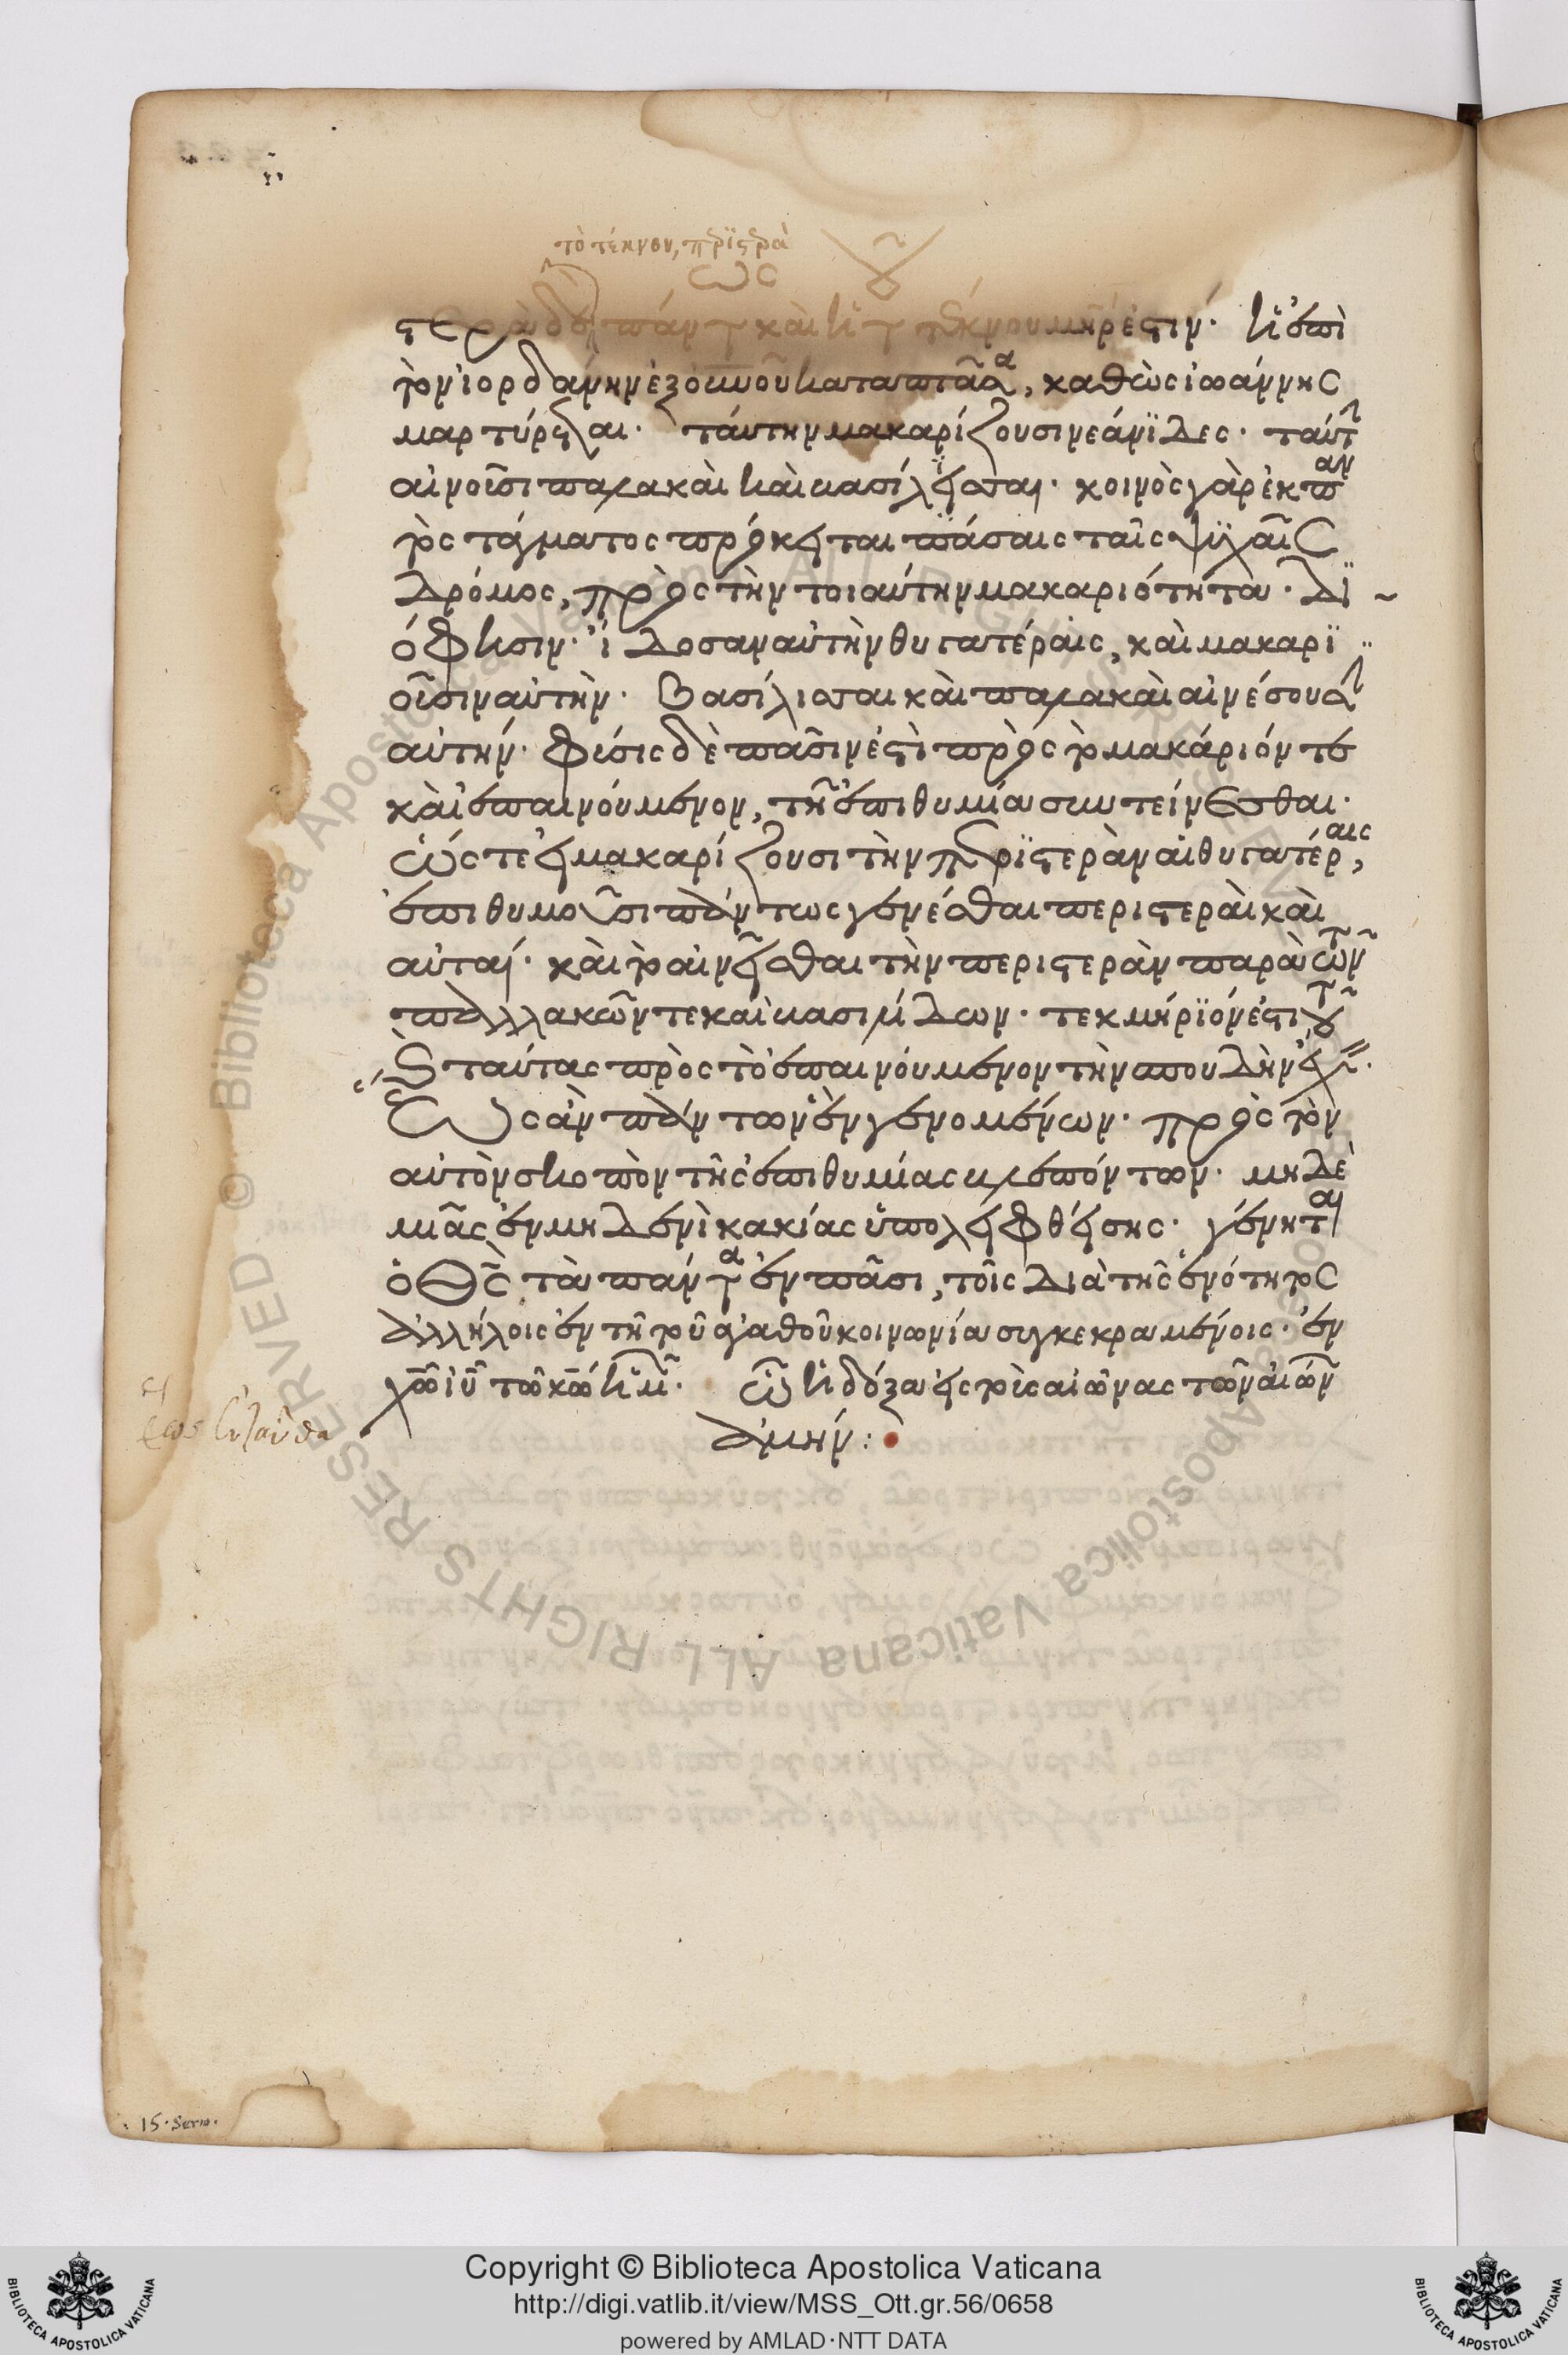 τὸ τέκνον, πρϊςρὰ
ως
ςερὰ δὲ πάντ καὶ ἡ τ τέκνου μηρ ἐςιν· ἡ ἐπὶ
τὸν ἰορδάνην ἐξ οὐνοῦ καταπτᾶσα, καθὼς ἰωάννης
μαρτύρεται· ταύτην μακαρίζουσι νεάνϊδες· ταύτ
αἰνοῦσι παλακαὶ καὶ βασίλϊσσαι· κοινὸς γὰρ ἐκ παν
τὸς τάγματος πρόκειται πάσαις ταῖς ψϋχαῖς
δρόμος, πρὸς τὴν τοιαύτην μακαριότητα· δϊ
ό φησιν· ἴδοσαν αὐτὴν θυγατέραις, καὶ μακαρϊ
οῦσιν αὐτὴν· βασίλισσαι καὶ παλακαὶ αἰνέσουσι
αὐτήν· φύσις δὲ πᾶσιν ἐςὶ πρὸς τὸ μακάριόν τε
καὶ ἐπαινούμενον, τῆ ἐπιθυμία συντείνεσθαι·
ὥς τε εἰ μακαρίζουσι τὴν πρϊςερὰν αἱ θυγατέραις,
ἐπιθυμοῦσι πάντως γενέσθαι περιςεραὶ καὶ
αὐταί· καὶ τὸ αἰνεῖσθαι τὴν περιςερὰν παρὰ τῶν
παλλακῶν τε καὶ βασιλίδων· τεκμήρϊόν ἐςι τοῦ
καὶ ταύτας πρὸς τὸ ἐπαινούμενον τὴν σπουδὴν ἔχ
ἕως ἂν πάντων ἓν γενομένων· πρὸς τὸν
αὐτὸν σκοπὸν τῆς ἐπιθυμίας βλεπόντων· μηδε
μιᾶς ἐν μηδενὶ κακίας ὑπολειφθείσης· γένηται
ὁ θς τὰ πάντα ἐν πᾶσι, τοῖς διὰ τῆς ἑνότητος
ἀλλήλοις ἐν τῆ τοῦ ἀγαθοῦ κοινωνία συγκεκραμένοις· ἐν
χῶ ἰῦ τῶ κῶ ἡμ· ὧ ἡ δόξα εἰς τοὺς αἰῶνας τῶν αἰών
ἀμήν:
ἕως ἐνταῦθα
15. Serm.
© Biblioteca Apostolica Vaticana ALL RIGHTS RESERVED
Copyright © Biblioteca Apostolica Vaticana
http://digi.vatlib.it/view/MSS_Ott.gr.56/0658
powered by AMLAD·NTT DATA
BIBLIOTECA APOSTOLICA VATICANA
BIBLIOTECA APOSTOLICA VATICANA